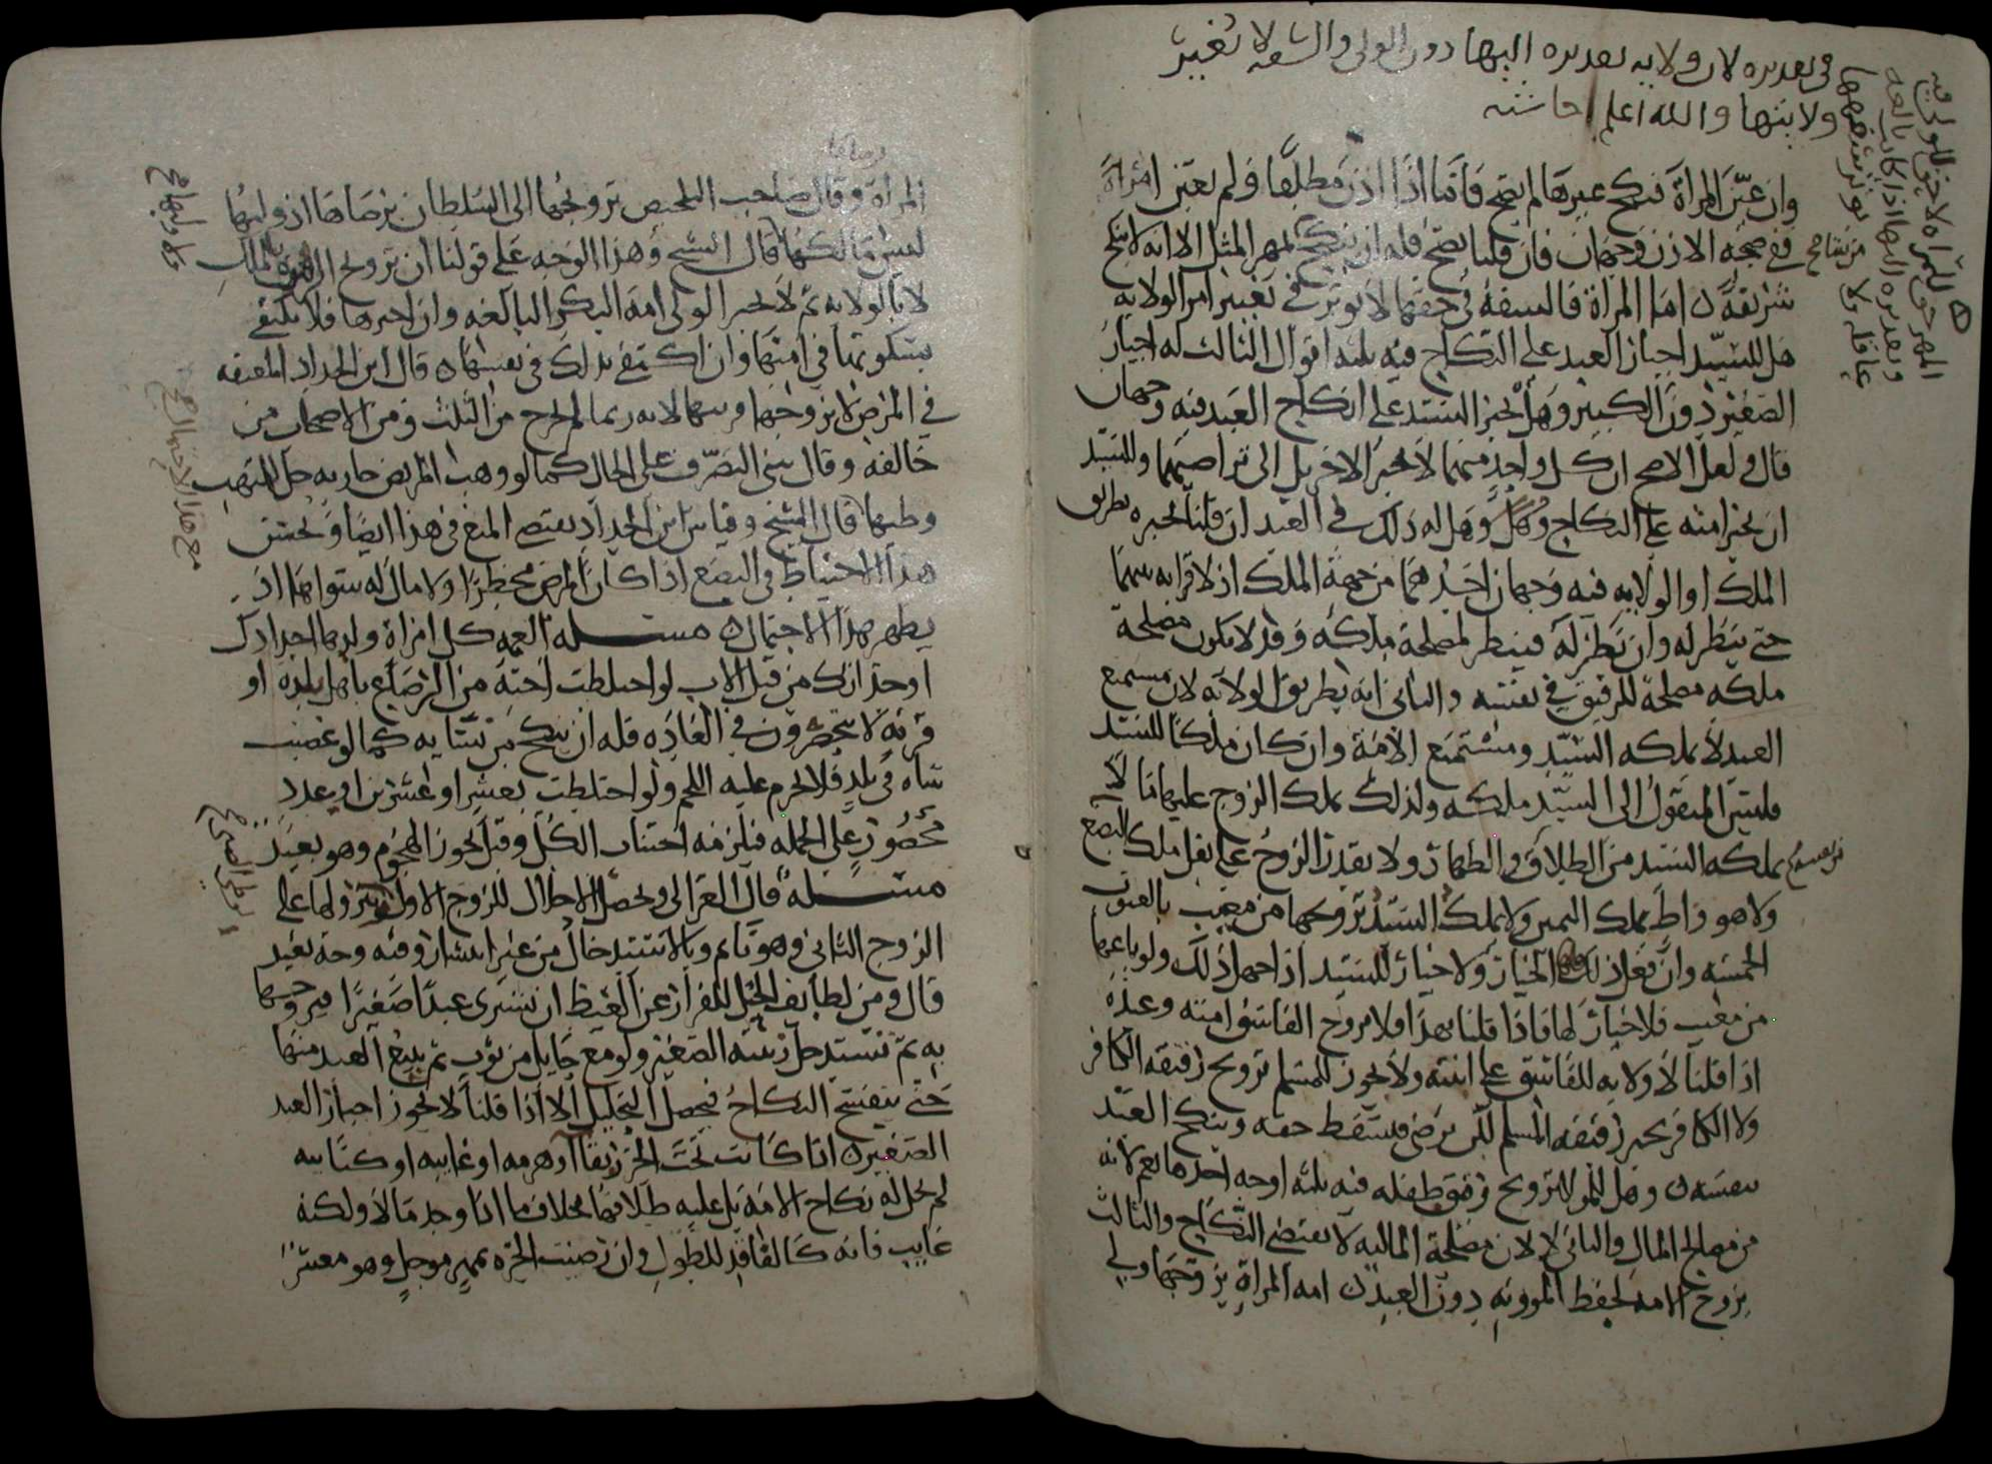 في تقديره لان ولايه تقديره اليها دون الولي والسفه لا تغير
ولايتها والله اعلم حاشيه
المهر حق للمراه لا حق للولي فيه
وتقديره اليها اذا كانت بالغه
عاقله ولا يؤثر سفهها
وان عيّن المراة فنكح غيرها لم يصح فاما اذا اذن مطلقا ولم يعين امراة
ففي صحه الاذن وجهان فان قلنا يصح فله ان ينكح بمهر المثل الا انه لا ينكح
شريفة اما المراة فالسفه في حقها لا يوثر في تغيير امر الولايه
هل للسيد اجبار العبد على النكاح فيه ثلثه اقوال الثالث له اجبار
الصغير دون الكبير وهل يجبر السيد على انكاح العبد فيه وجهان
قال ولعل الاصح ان كل واحد منهما لا يجبر الاخر بل الى تراضيهما وللسيد
ان يجبر امته على النكاح وهل له ذلك في العبد ان قلنا يجبره بطريق
الملك او الولايه فيه وجهان احدهما من جهة الملك اذ لا قرابه بينهما
حتى ينظر له وان نظر له فينظر لمصلحة ملكه وقد لا يكون مصلحة
ملكه مصلحة للرقيق في نفسه والثاني انه بطريق الولايه لان مستمتع
العبد لا يملكه السيد ومستمتع الامة وان كان ملكا للسيد
فليس المنقول الى السيد ملكه ولذلك يملك الزوج عليها ما لا
يملكه السيد من الطلاق والظهار ولا يقدر الزوج على نقل ملك البضع
ولا هو واطٍ بملك اليمين ولا يملك السيد تزويجها من معيب بالعيوب
الخمسه وان فعل ذلك فلها الخيار ولا خيار للسيد اذا جهل ذلك ولو باعها
من معيب فلا خيار لها فاذا قلنا بهذا فلا يزوج الفاسق امته وعبده
اذا قلنا لا ولايه للفاسق على ابنته ولا يجوز للمسلم تزويج رقيقه الكافر
ولا الكافر يجبر رقيقه المسلم لكن يرضى فيسقط حقه وينكح العبد
بنفسه وهل للولي تزويج رقيق طفله فيه ثلثه اوجه احدها نعم لانه
من مصالح المال والثاني لا لان مصلحة الماليه لا تقتضي النكاح والثالث
يزوج الامة لحفظ الموونه دون العبد امه المراة يزوجها ولي
المراة وقال صاحب التلخيص تزويجها الى السلطان برضاها اذ وليها
ليس مالكها قال الشيخ وهذا الوجه على قولنا ان تزويج الامة بالملك
لا بالولايه ثم لا يجبر الولي امة البكر البالغه وان اجبرها فلا يكتفي
بسكوتها في امتها وان اكتفي بذلك في نفسها قال ابن الحداد المعتقه
في المرض لا يزوجها قريبها لانه ربما لم تخرج من الثلث ومن الاصحاب من
خالفه وقال ينبني التصرف على الحال كما لو وهب المريض جاريه حل للمتهب
وطيها قال الشيخ وقياس ابن الحداد يقتضي المنع في هذا ايضا ويحتمل
هذا الاحتياط في البضع اذا كان المرض مخطرا ولا مال له سواها اذ
يظهر هذا الاحتمال مسئله العمه كل امراة ولدها اجدادك
او جداتك من قبل الاب لو اختلطت اخته من الرضاع باهل بلده او
قرية لا ينحصرون في العاده فله ان ينكح من نسائه كما لو غصب
شاه في بلد فلا يحرم عليه اللحم ولو اختلطت بعشر او عشرين او بعدد
محصور على الجمله فيلزمه اجتناب الكل وقيل يجوز الهجوم وهو بعيد
مسئله قال الغزالي ويحصل الاحلال للزوج الاول بنزولها على
الزوج الثاني وهو نائم وبالاستدخال من غير انتشار وفيه وجه بعيد
قال ومن لطايف الحيل للفرار عن الغيظ ان تشتري عبدا صغيرا فيزوجها
به ثم تستدخل زبيبته الصغيره ولو مع حايل من ثوب ثم يبيع العبد منها
حتى ينفسخ النكاح فيحصل التحليل الا اذا قلنا لا يجوز اجبار العبد
الصغير اذا كانت تحت الحر رتقا او هرمه او غايبه او كتابيه
لم يحل له نكاح الامة بل عليه طلاقها بخلاف ما اذا وجد مالا ولكنه
غايب فانه كالفاقد للطول وان رضيت الحره بمهر موجل وهو معسر